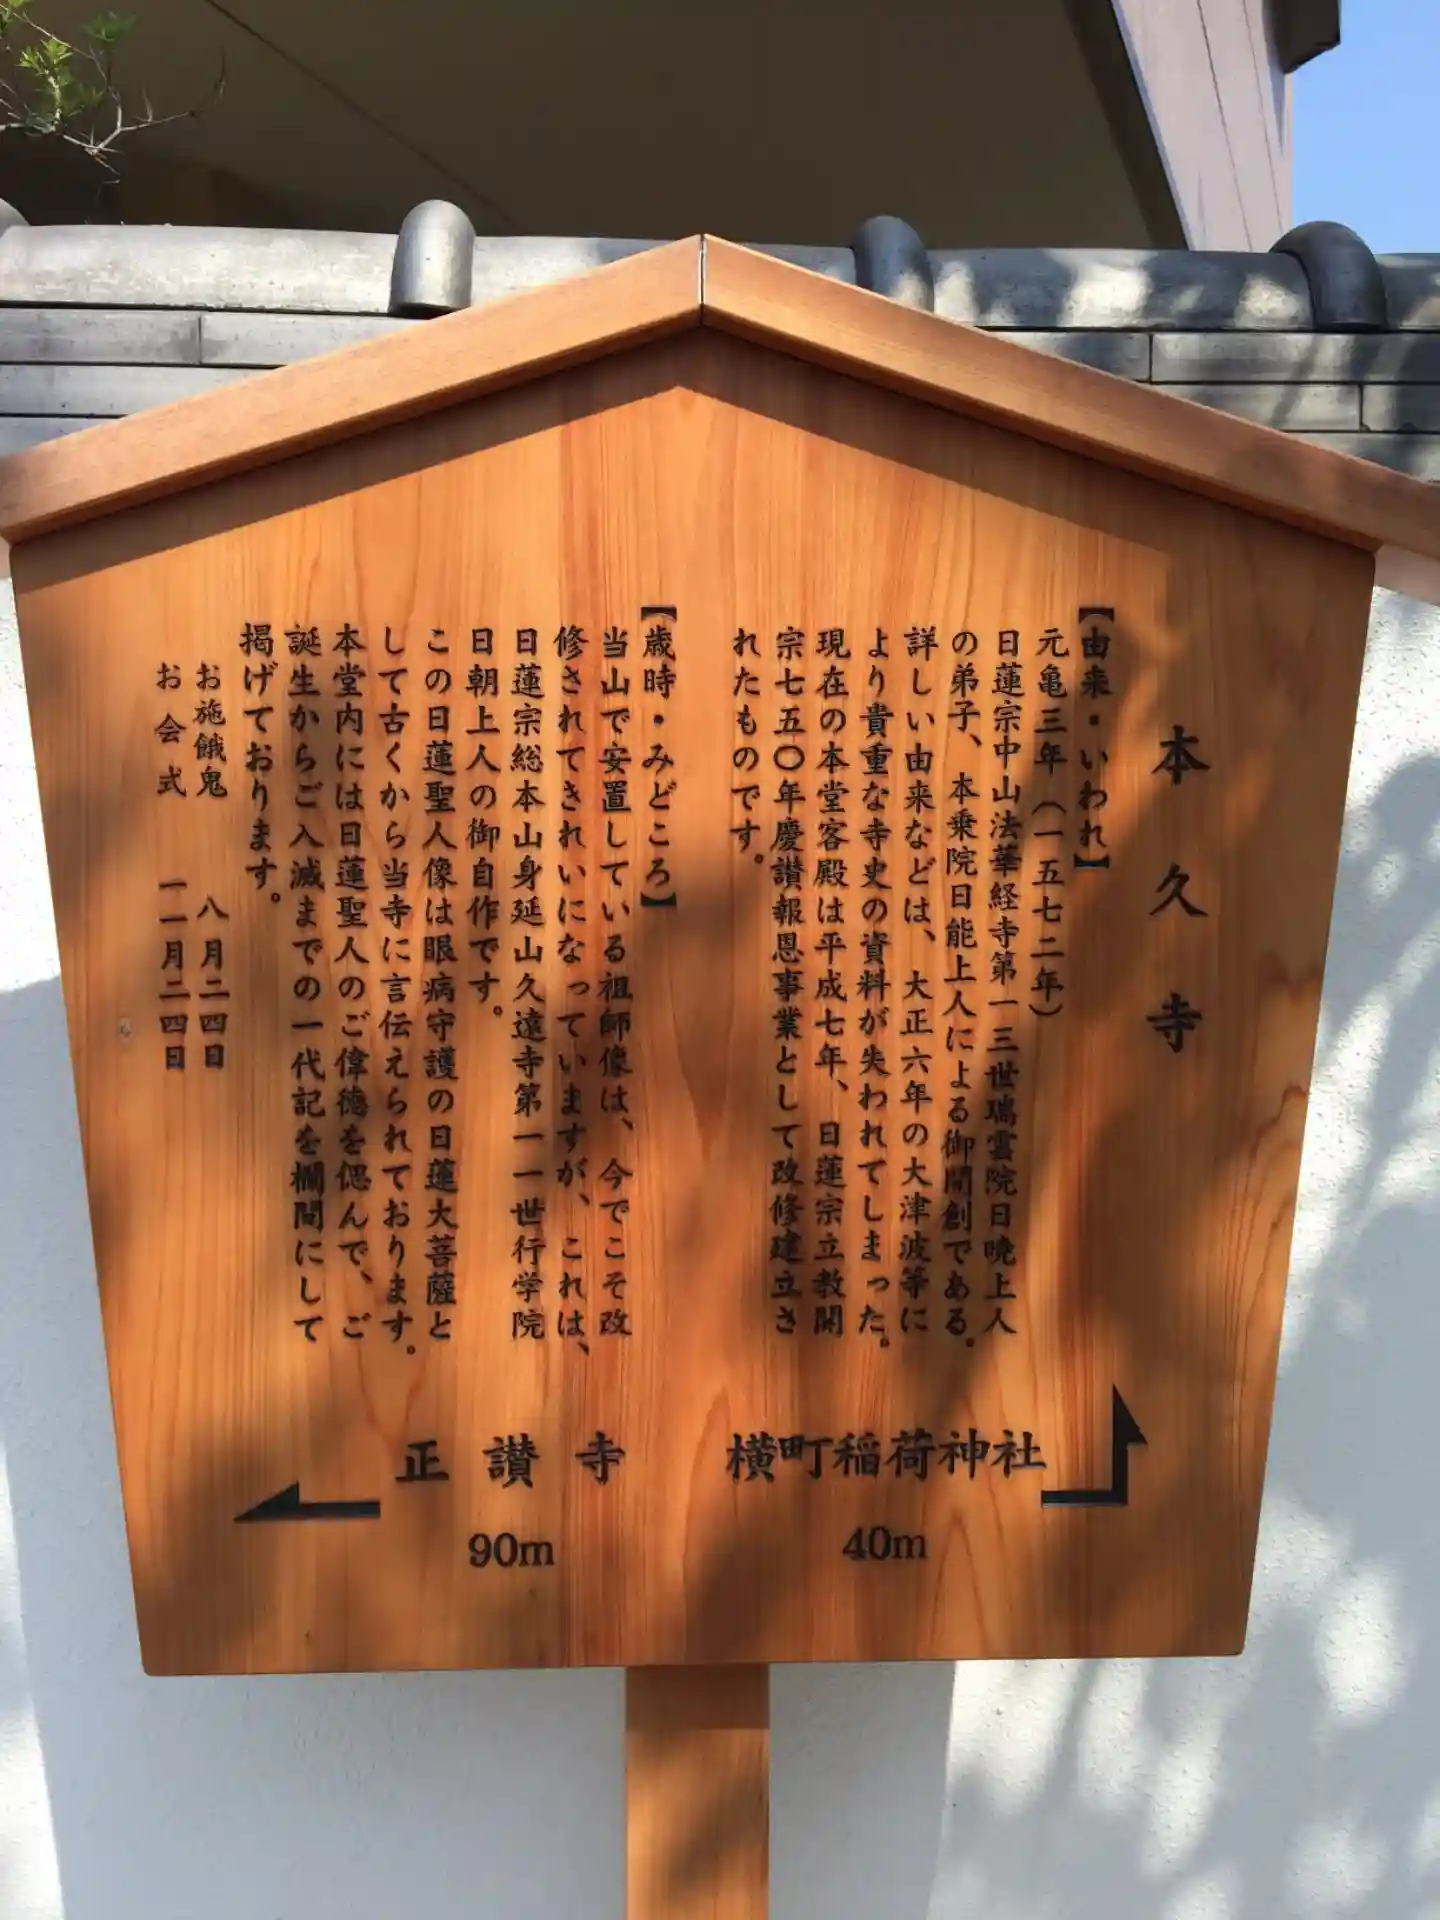 本久寺
【由来・いわれ】
元亀三年(一五七二年)
日蓮宗中山法華経寺第一三世瑞雲院日暁上人
の弟子、本乗院日能上人による御開創である。
詳しい由来などは、大正六年の大津波等に
より貴重な寺史の資料が失われてしまった。
現在の本堂客殿は平成七年、日蓮宗立教開
宗七五〇年慶讃報恩事業として改修建立さ
れたものです。
【歳時・みどころ】
当山で安置している祖師像は、今でこそ改
修されてきれいになっていますが、これは、
日蓮宗総本山身延山久遠寺第一一世行学院
日朝上人の御自作です。
この日蓮聖人像は眼病守護の日蓮大菩薩と
して古くから当寺に言伝えられております。
本堂内には日蓮聖人のご偉徳を偲んで、ご
誕生からご入滅までの一代記を欄間にして
掲げております。
お施餓鬼 八月二四日
お会式 一一月二四日
横町稲荷神社
40m
正讃寺
90m